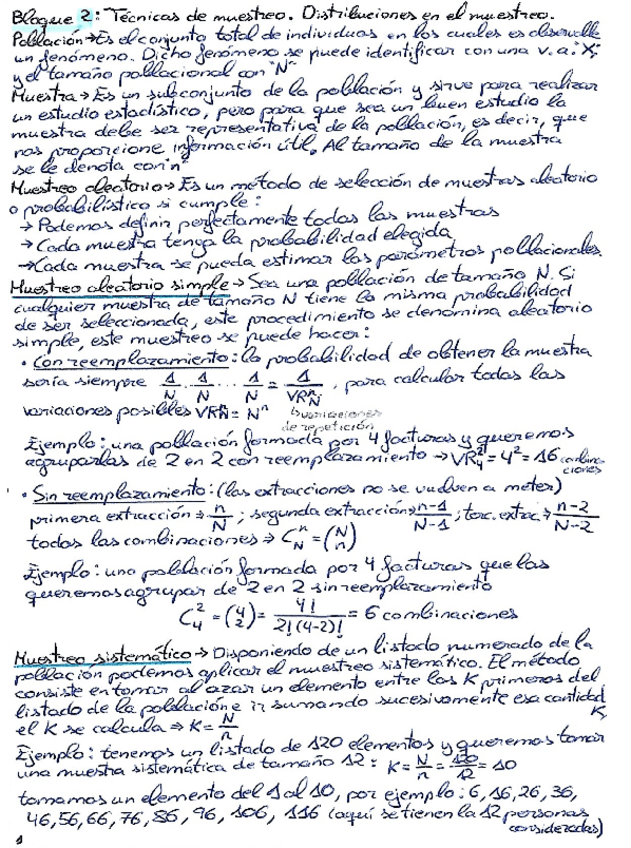 Bloque 2: Técnicas de muestreo. Distribuciones en el muestreo.
Población → Es el conjunto total de individuos en los cuales es observable
un fenómeno. Dicho fenómeno se puede identificar con una v.a. "X",
y el tamaño poblacional con "N"
Muestra → Es un subconjunto de la población y sirve para realizar
un estudio estadístico, pero para que sea un buen estudio la
muestra debe ser representativa de la población, es decir, que
nos proporcione información útil. Al tamaño de la muestra
se le denota con "n"
Muestreo aleatorio → Es un método de selección de muestras aleatorio
o probabilístico si cumple:
→ Podemos definir perfectamente todas las muestras
→ Cada muestra tenga la probabilidad elegida
→ Cada muestra se pueda estimar los parámetros poblacionales.
Muestreo aleatorio simple → Sea una población de tamaño N. Si
cualquier muestra de tamaño N tiene la misma probabilidad
de ser seleccionada, este procedimiento se denomina aleatorio
simple, este muestreo se puede hacer:
• Con reemplazamiento: la probabilidad de obtener la muestra
sería siempre 1/N · 1/N ... 1/N = 1/VRⁿN, para calcular todas las
variaciones posibles VRⁿN = Nⁿ ↳ variaciones
de repetición
Ejemplo: una población formada por 4 facturas y queremos
agruparlas de 2 en 2 con reemplazamiento → VR²₄ = 4² = 16 combina-
ciones
• Sin reemplazamiento: (las extracciones no se vuelven a meter)
primera extracción → n/N ; segunda extracción → n-1/N-1 ; terc. extrac. → n-2/N-2
todas las combinaciones → CⁿN = (N n)
Ejemplo: una población formada por 4 facturas que las
queremos agrupar de 2 en 2 sin reemplazamiento
C²₄ = (4 2) = 4!/2!(4-2)! = 6 combinaciones
Muestreo sistemático → Disponiendo de un listado numerado de la
población podemos aplicar el muestreo sistemático. El método
consiste en tomar al azar un elemento entre los K primeros del
listado de la población e ir sumando sucesivamente esa cantidad
K,
el K se calcula → K = N/n
Ejemplo: tenemos un listado de 120 elementos y queremos tomar
una muestra sistemática de tamaño 12: K = N/n = 120/12 = 10
tomamos un elemento del 1 al 10, por ejemplo: 6, 16, 26, 36,
46, 56, 66, 76, 86, 96, 106, 116 (aquí se tienen la 12 personas
consideradas)
1